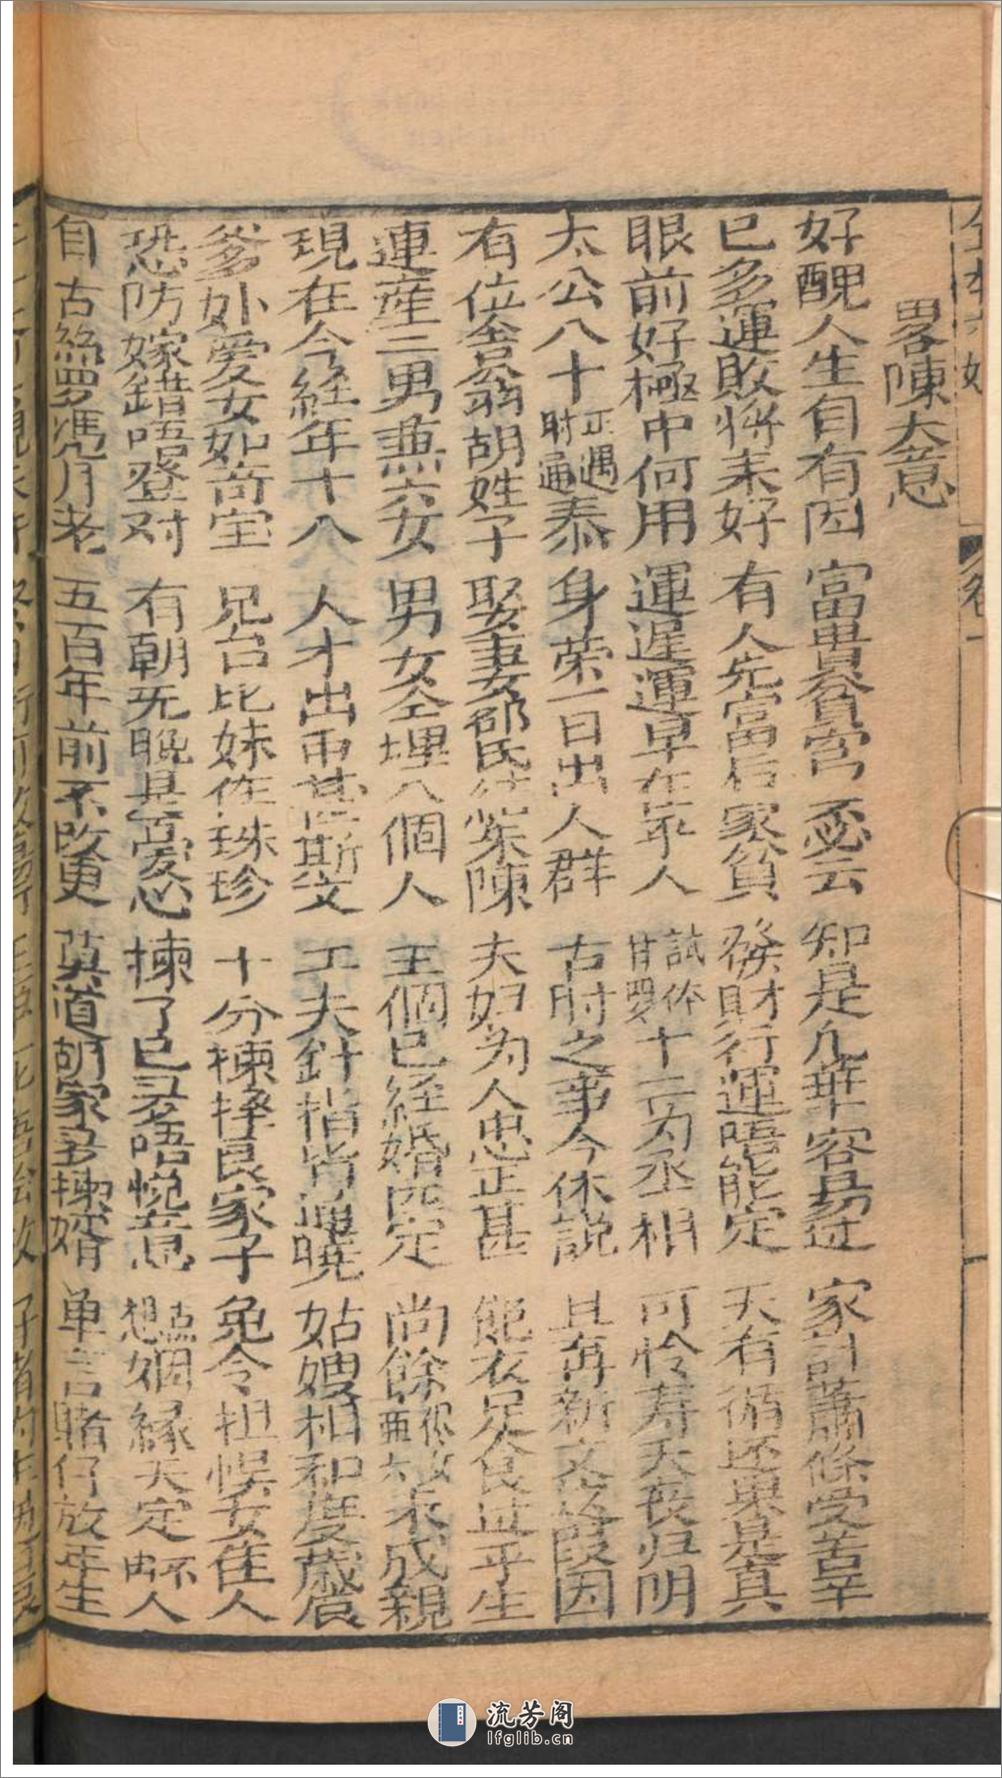 畧陳大意
好醜人生自有因 富貴貧窮不必云 知是几華容易过 家計蕭條受苦辛
已多運敗將来好 有人先富后家貧 發財行運唔能定 天有循还果是真
眼前好極中何用 運遲運早在乎人 試体甘羅十二为丞相 可怜寿夭丧归阴
太公八十正遇时通泰 身荣一日出人群 古时之事今休説 且再新文这段因
有位舍翁胡姓子 娶妻邵氏結柴陳 夫妇为人忠正甚 飽衣足食过乎生
連産二男兼六女 男女仝埋八個人 王個已経婚匹定 尚餘未成親
現在今経年十八 人才出衆甚斯文 工夫針指皆通曉 姑嫂相和度歲辰
爹妳爱女如奇宝 兄台比妹作珠珍 十分揀择良家子 免令担悞女佳人
恐防嫁錯唔登对 有朝无晚是爱心 揀了已多唔悦意 点想姻緣天定不由人
自古絲罗凴月老 五百年前不改更 莫道胡家多揀婿 单言賭仔放年生
卷一
流芳阁
lfglib.cn